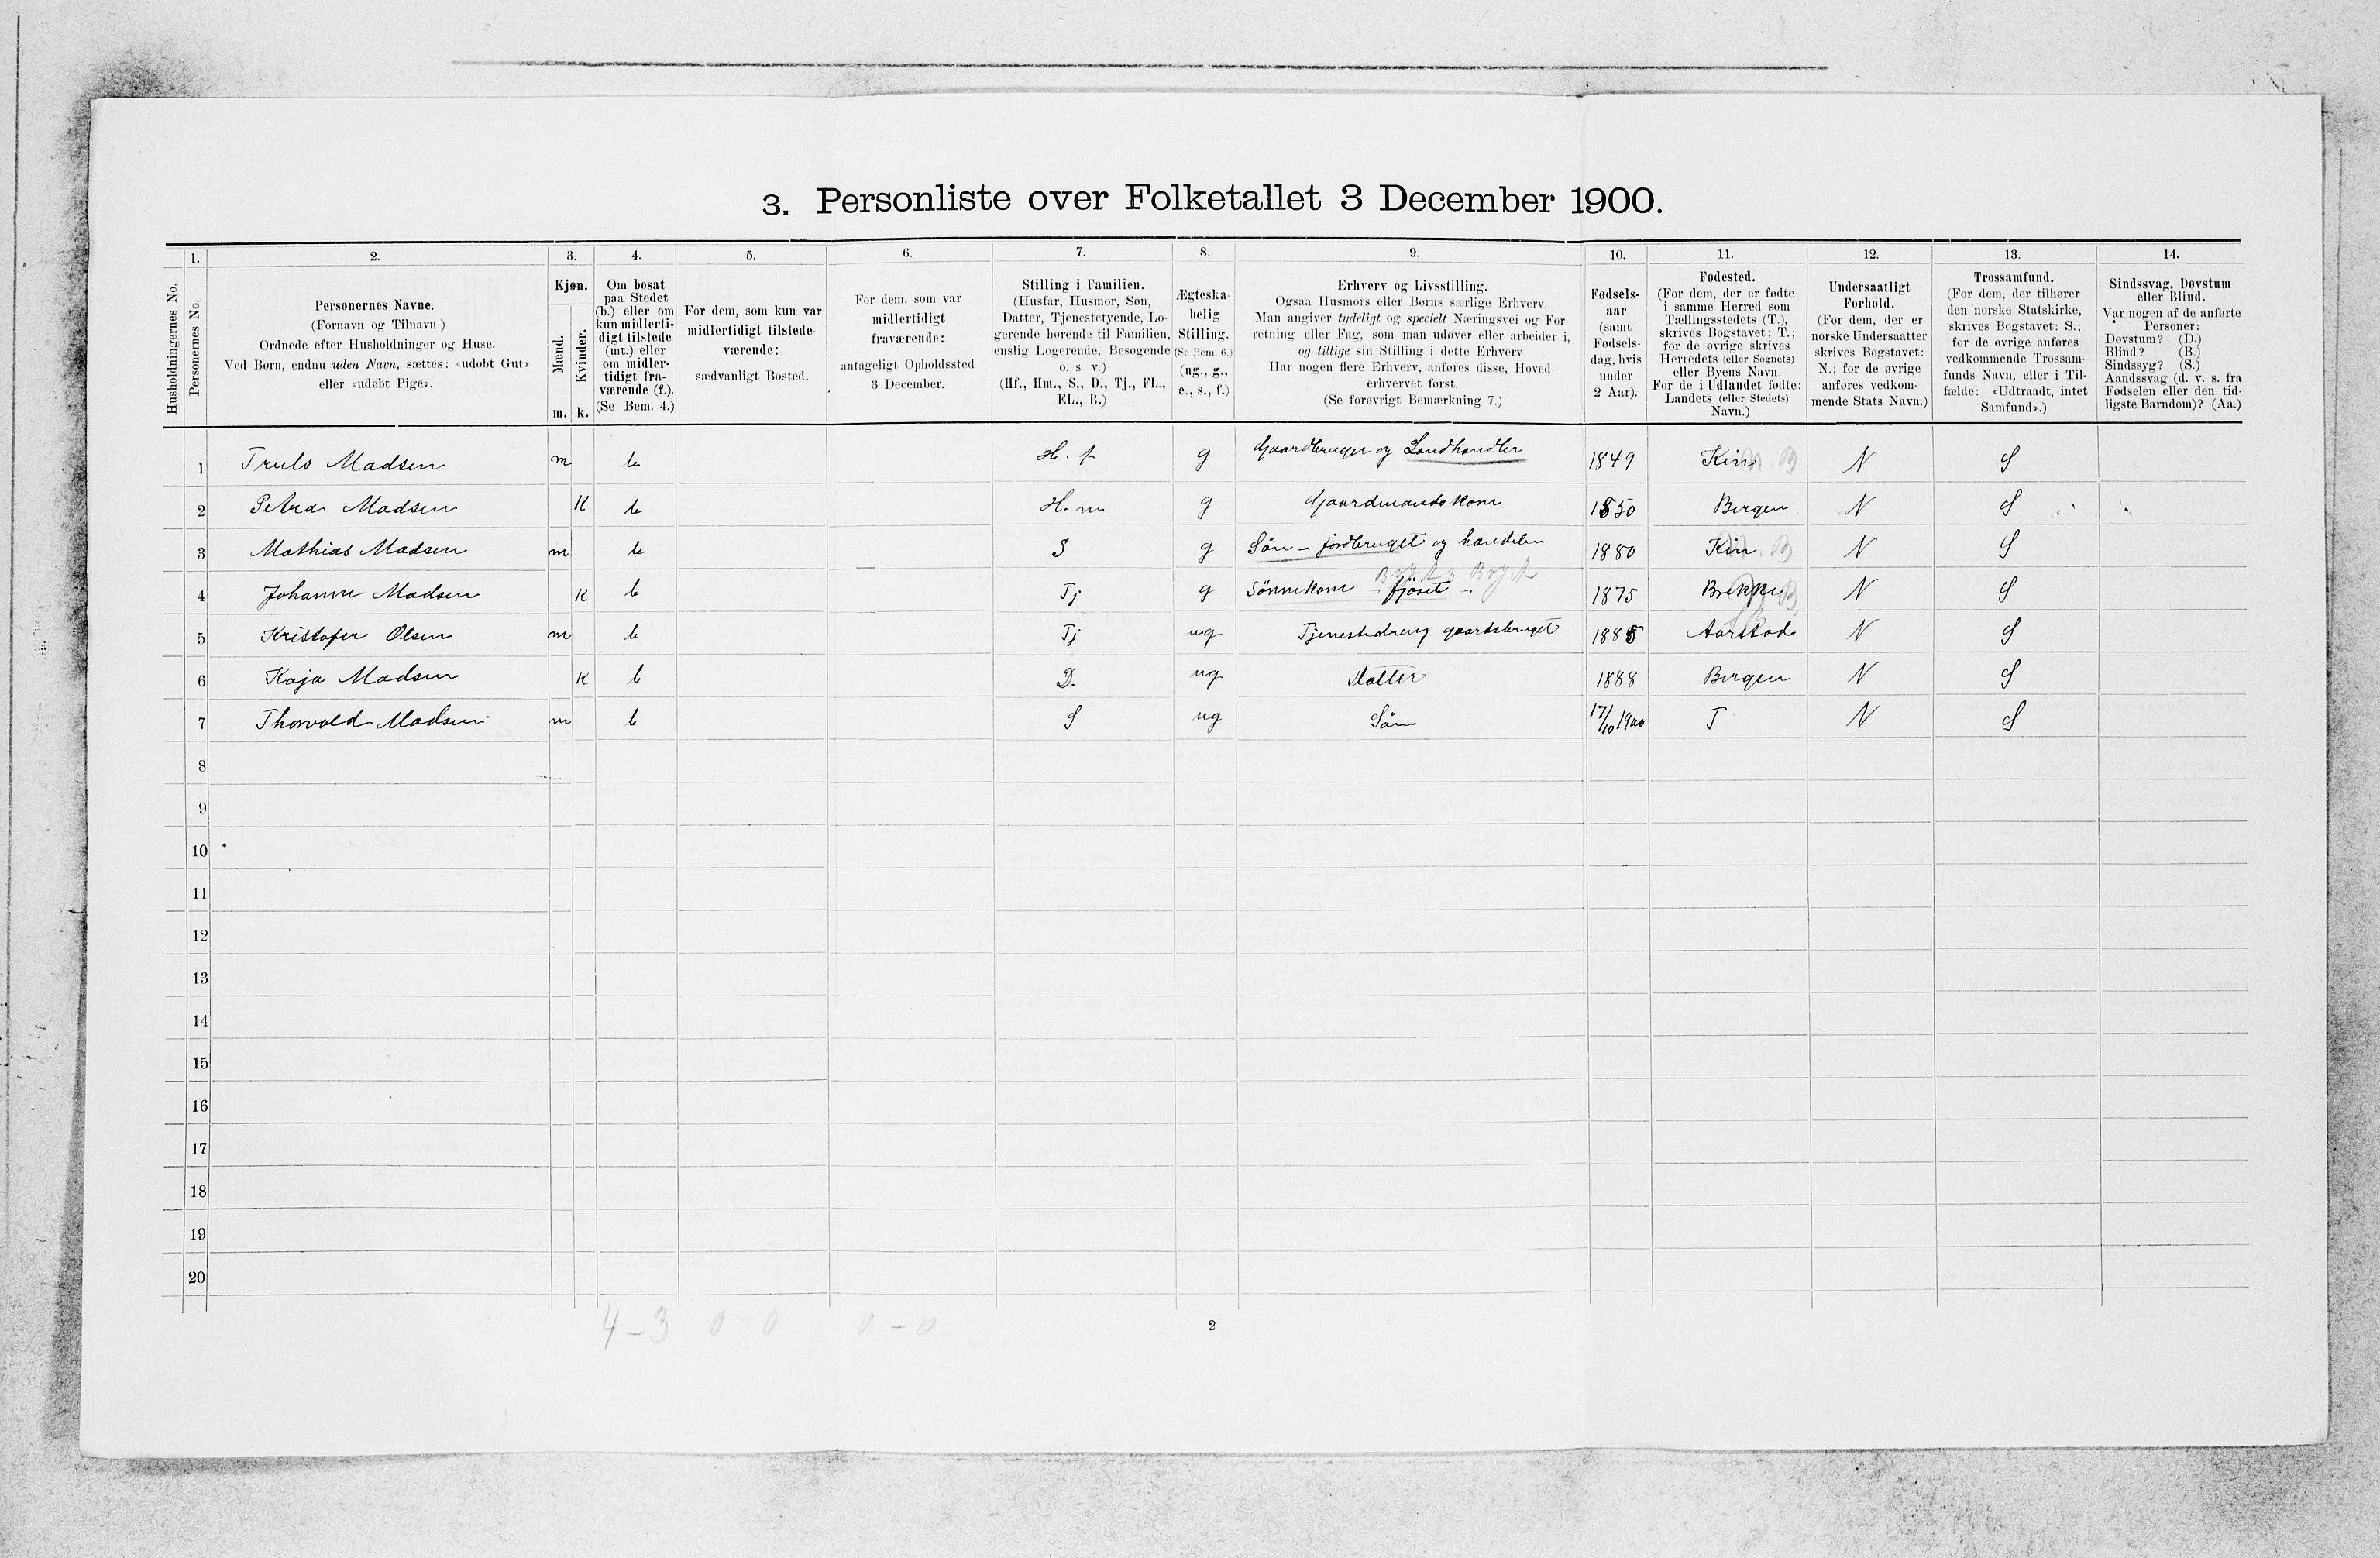 3. Personliste over Folketallet 3 December 1900.
1. 2. 3. 4. 5. 6. 7. 8. 9. 10. 11. 12. 13. 14.
Husholdningernes No.
Personernes No.
Personernes Navne.
(Fornavn og Tilnavn)
Ordnede efter Husholdninger og Huse.
Ved Børn, endnu uden Navn, sættes: «udøbt Gut»
eller «udøbt Pige».
Kjøn.
Mænd.
Kvinder.
m. k.
Om bosat
paa Stedet
(b.) eller om
kun midlerti-
digt tilstede
(mt.) eller
om midler-
tidigt fra-
værende (f.).
(Se Bem. 4.)
For dem, som kun var
midlertidigt tilstede-
værende:
sædvanligt Bosted.
For dem, som var
midlertidigt
fraværende:
antageligt Opholdssted
3 December.
Stilling i Familien.
(Husfar, Husmor, Søn,
Datter, Tjenestetyende, Lo-
gerende hørende til Familien,
enslig Logerende, Besøgende
o. s. v.)
(Hf., Hm., S., D., Tj., FL.,
EL., B.)
Ægteska-
belig
Stilling.
(Se Bem. 6.)
(ug., g.,
e., s., f.)
Erhverv og Livsstilling.
Ogsaa Husmors eller Børns særlige Erhverv.
Man angiver tydeligt og specielt Næringsvei og For-
retning eller Fag, som man udøver eller arbeider i,
og tillige sin Stilling i dette Erhverv.
Har nogen flere Erhverv, anføres disse, Hoved-
erhvervet først.
(Se forøvrigt Bemærkning 7.)
Fødsels-
aar
(samt
Fødsels-
dag, hvis
under
2 Aar).
Fødested.
(For dem, der er fødte
i samme Herred som
Tællingsstedets (T.),
skrives Bogstavet: T.;
for de øvrige skrives
Herredets (eller Sognets)
eller Byens Navn.
For de i Udlandet fødte:
Landets (eller Stedets)
Navn.)
Undersaatligt
Forhold.
(For dem, der er
norske Undersaatter
skrives Bogstavet:
N.; for de øvrige
anføres vedkom-
mende Stats Navn.)
Trossamfund.
(For dem, der tilhører
den norske Statskirke,
skrives Bogstavet: S.;
for de øvrige anføres
vedkommende Trossam-
funds Navn, eller i Til-
fælde: «Udtraadt, intet
Samfund».)
Sindssvag, Døvstum
eller Blind.
Var nogen af de anførte
Personer:
Døvstum? (D.)
Blind? (B.)
Sindssyg? (S.)
Aandssvag (d. v. s. fra
Fødselen eller den tid-
ligste Barndom)? (Aa.)
1 Truls Madsen m b H. f g Gaardbruger og Landhandler 1849 Kin N S
2 Petra Madsen K b H. m g Gaardmandskone 1850 Bergen N S
3 Mathias Madsen m b S g Søn - jordbruget og handelen 1880 Kin N S
4 Johanne Madsen K b Tj g Sønnekone - fjöset - 1875 Brekke N S
5 Kristofer Olsen m b Tj ug Tjenestedreng gaardsbruget 1885 Aarstad N S
6 Kaja Madsen K b D. ug Datter 1888 Bergen N S
7 Thorvald Madsen m b S ug Søn 17/10 1900 T N S
8
9
10
11
12
13
14
15
16
17
18
19
20
4-3 0-0 0-0
2